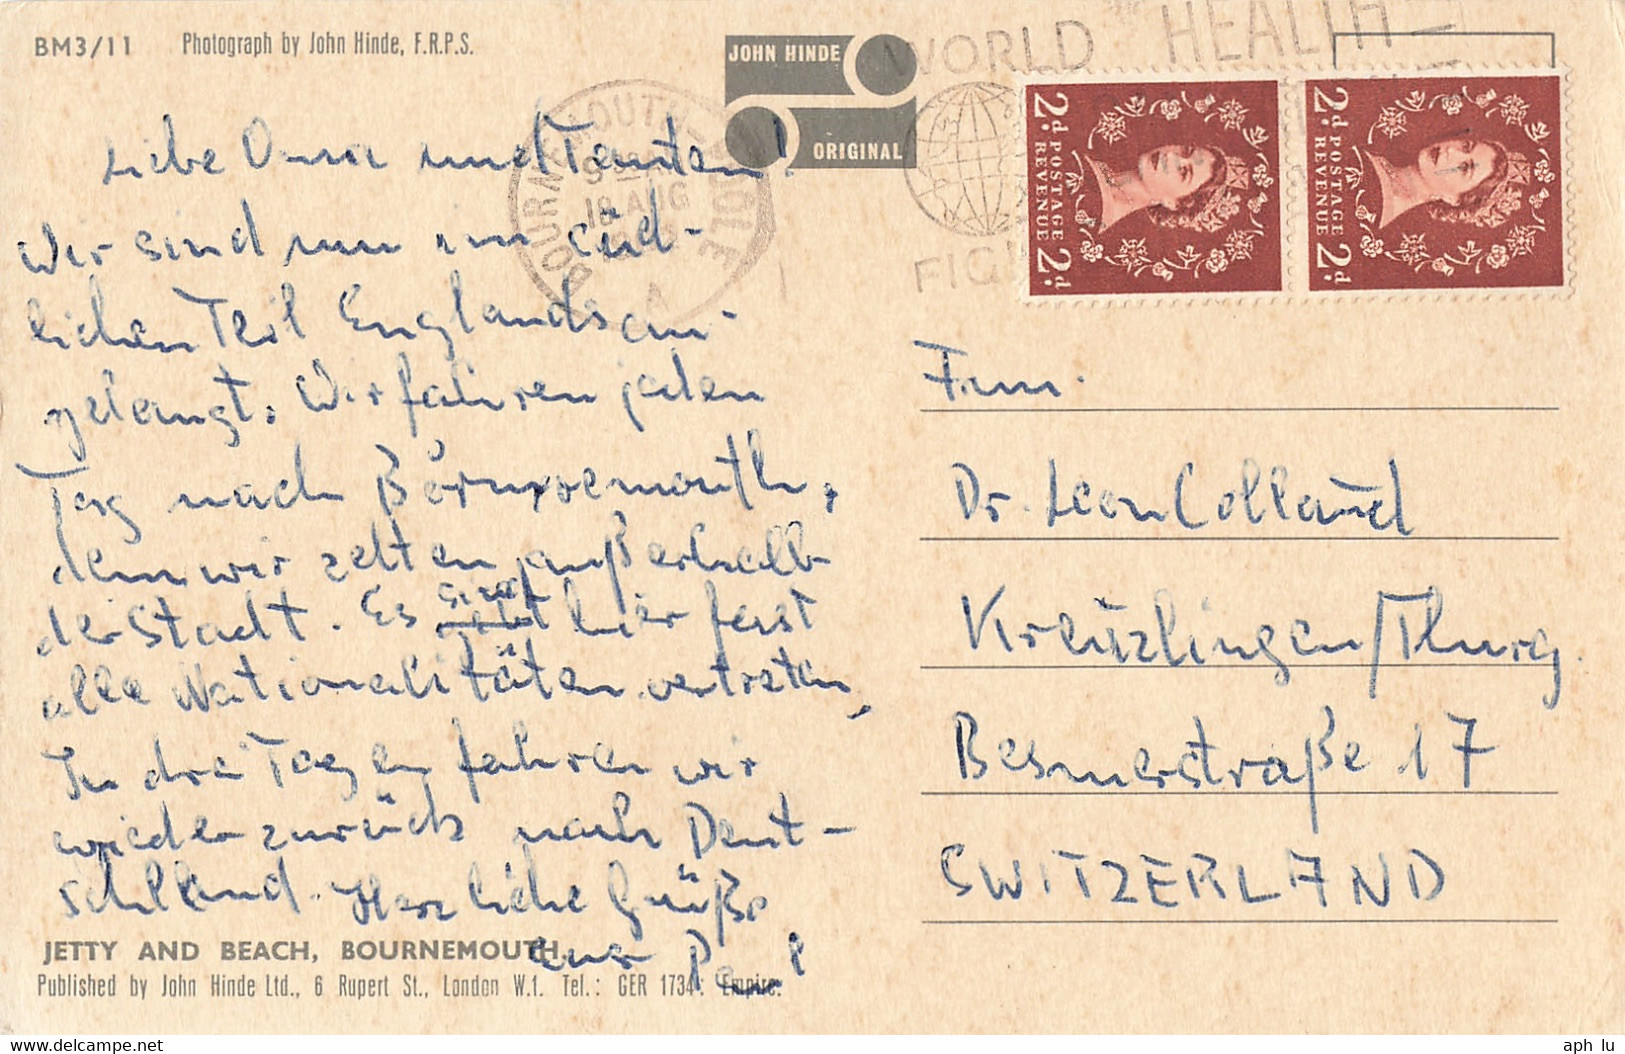 BM3/11 Photograph by John Hinde, F.R.P.S.
JOHN HINDE
ORIGINAL
WORLD HEALTH
FIG
BOURNEMOUTH-POOLE
18 AUG
A
2d. POSTAGE REVENUE 2d.
2d. POSTAGE REVENUE 2d.
Liebe Oma und Tanten!
Wir sind nun im süd-
lichen Teil Englands an-
gelangt. Wir fahren jeden
Tag nach Bornemouth,
denn wir zelten außerhalb
der Stadt. Es sind hier fast
alle Nationalitäten vertreten.
In drei Tagen fahren wir
wieder zurück nach Deut-
schland. Herzliche Grüße
euer Paul
JETTY AND BEACH, BOURNEMOUTH.
Published by John Hinde Ltd., 6 Rupert St., London W.1. Tel.: GER 1734: Empire.
Fam.
Dr. Leon Colland
Kreuzlingen/Thurg.
Besmerstraße 17
SWITZERLAND
aph lu